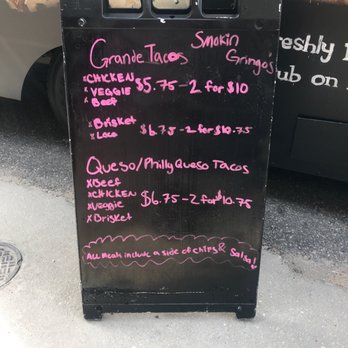 Smokin Gringo's
Grande Tacos
x CHICKEN
x VEGGIE $5.75-2 for $10
x Beef
x Brisket
x Loco $6.75-2-for $10.75
Queso/Philly Queso Tacos
x Beef
x CHICKEN
x Veggie $6.75-2 for $10.75
x Brisket
All meals include a side of chips & Salsa!
reshly
ub on